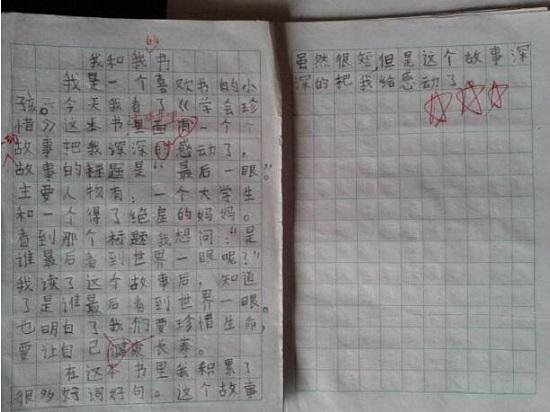 我和我的书
我是一个喜欢我的小
孩。今天我看了《学会珍
惜》这本书里面有一个个
故事把我深深的感动了,
故事的标题是“最后一眼”。
主要人物有,一个大学生
和一个得了绝症的妈妈。
看到那个标题我想问:“是
谁最后看到世界一眼呢?”
我读了这个故事后,知道
了是谁最后看到世界一眼。
也明白了我们要珍惜生命,
要让自己健康长寿。
在这本书里我积累了
很多好词好句。这个故事
虽然很短但是这个故事深
深的把我给感动了